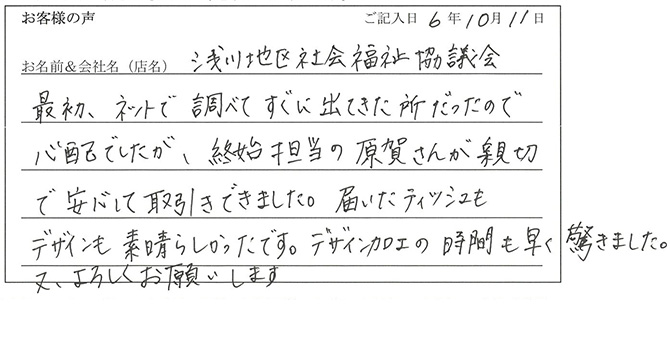 お客様の声 ご記入日 6年10月11日
お名前＆会社名（店名） 浅川地区社会福祉協議会
最初、ネットで調べてすぐに出てきた所だったので
心配でしたが、終始担当の原賀さんが親切
で安心して取引きできました。届いたティッシュも
デザインも素晴らしかったです。デザイン加工の時間も早く驚きました。
又、よろしくお願いします